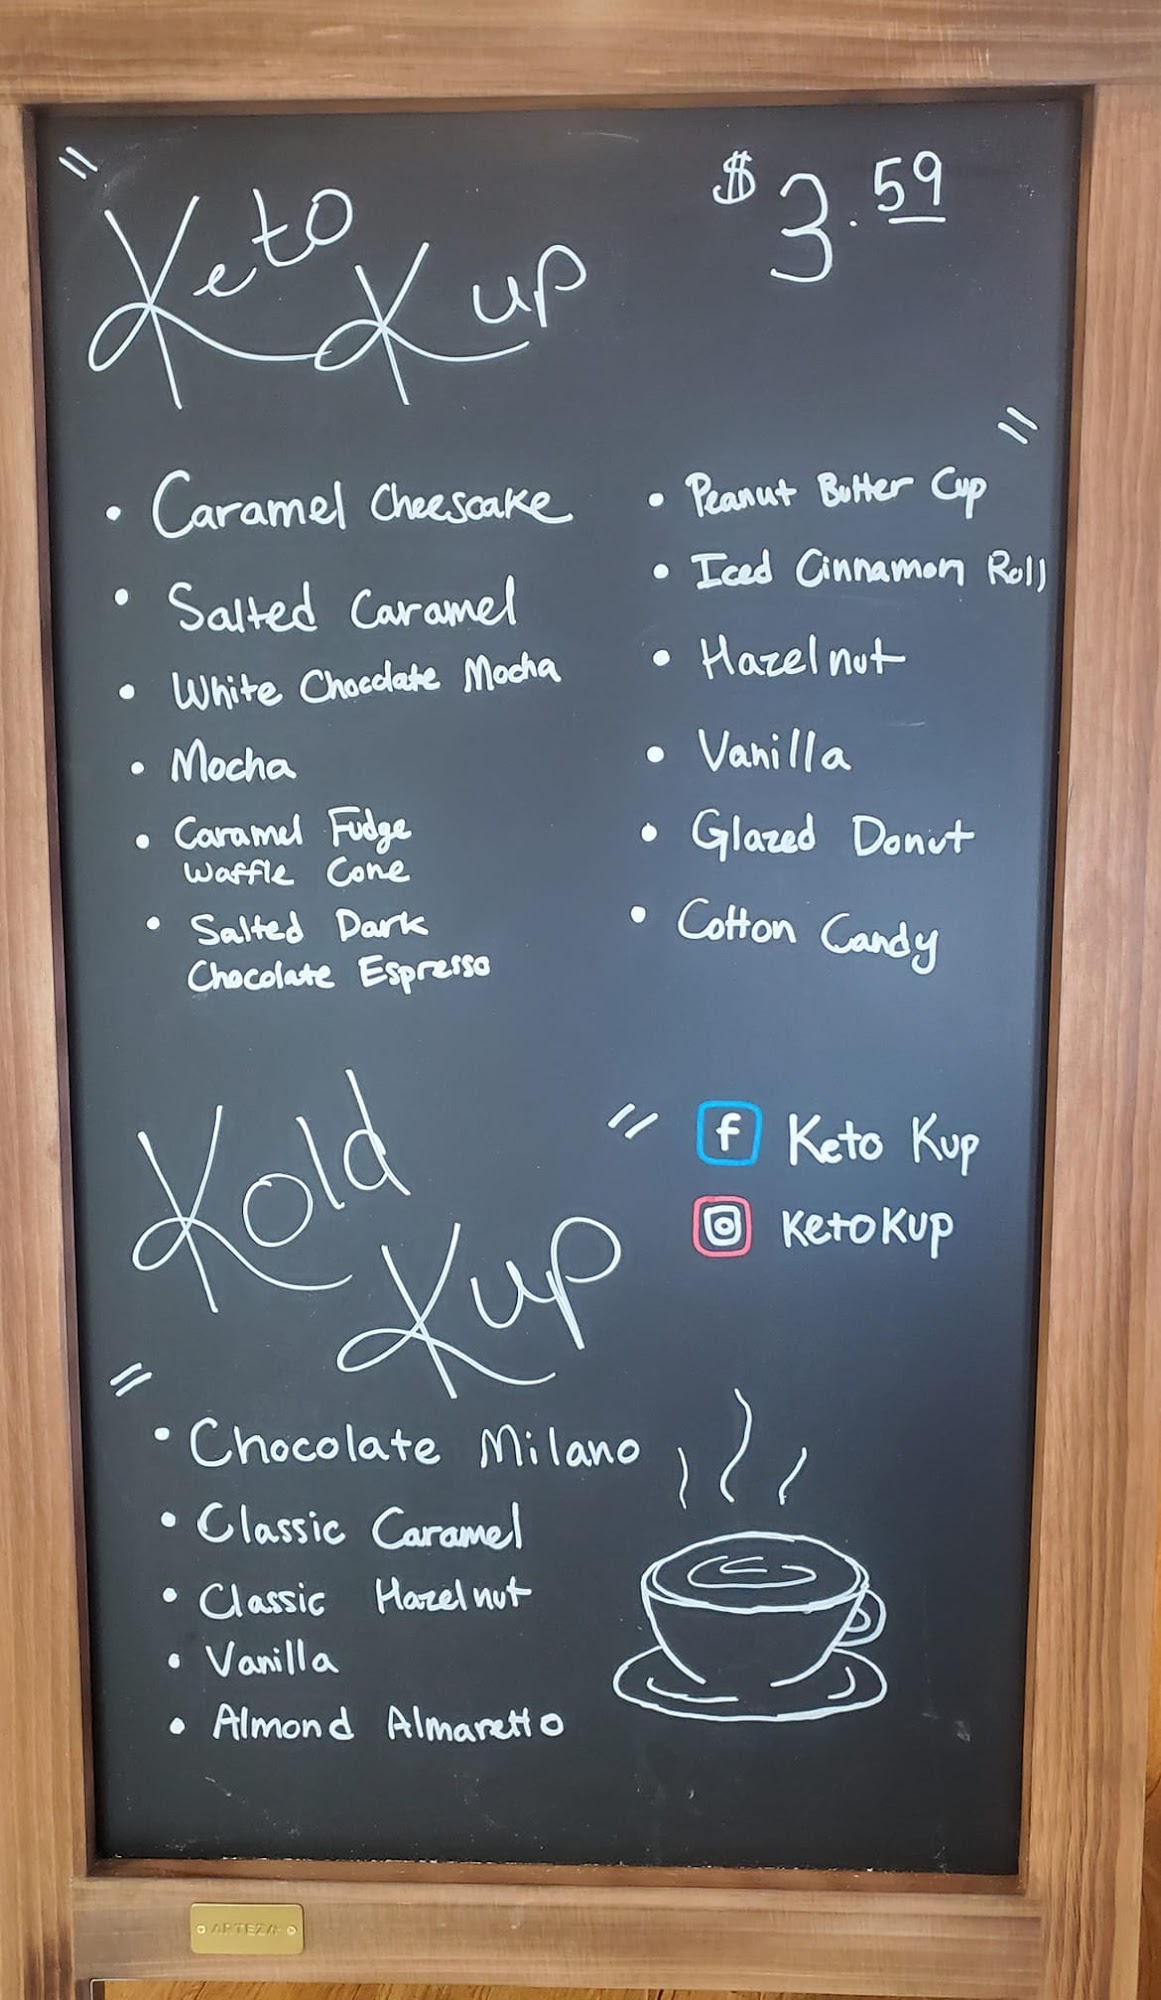 Keto Kup
$3.59
• Caramel Cheescake
• Salted Caramel
• White Chocolate Mocha
• Mocha
• Caramel Fudge
Waffle Cone
• Salted Dark
Chocolate Espresso
• Peanut Butter Cup
• Iced Cinnamon Roll
• Hazelnut
• Vanilla
• Glazed Donut
• Cotton Candy
Kold
Kup
f Keto Kup
KetoKup
• Chocolate Milano
• Classic Caramel
• Classic Hazelnut
• Vanilla
• Almond Almaretto
ARTEZA